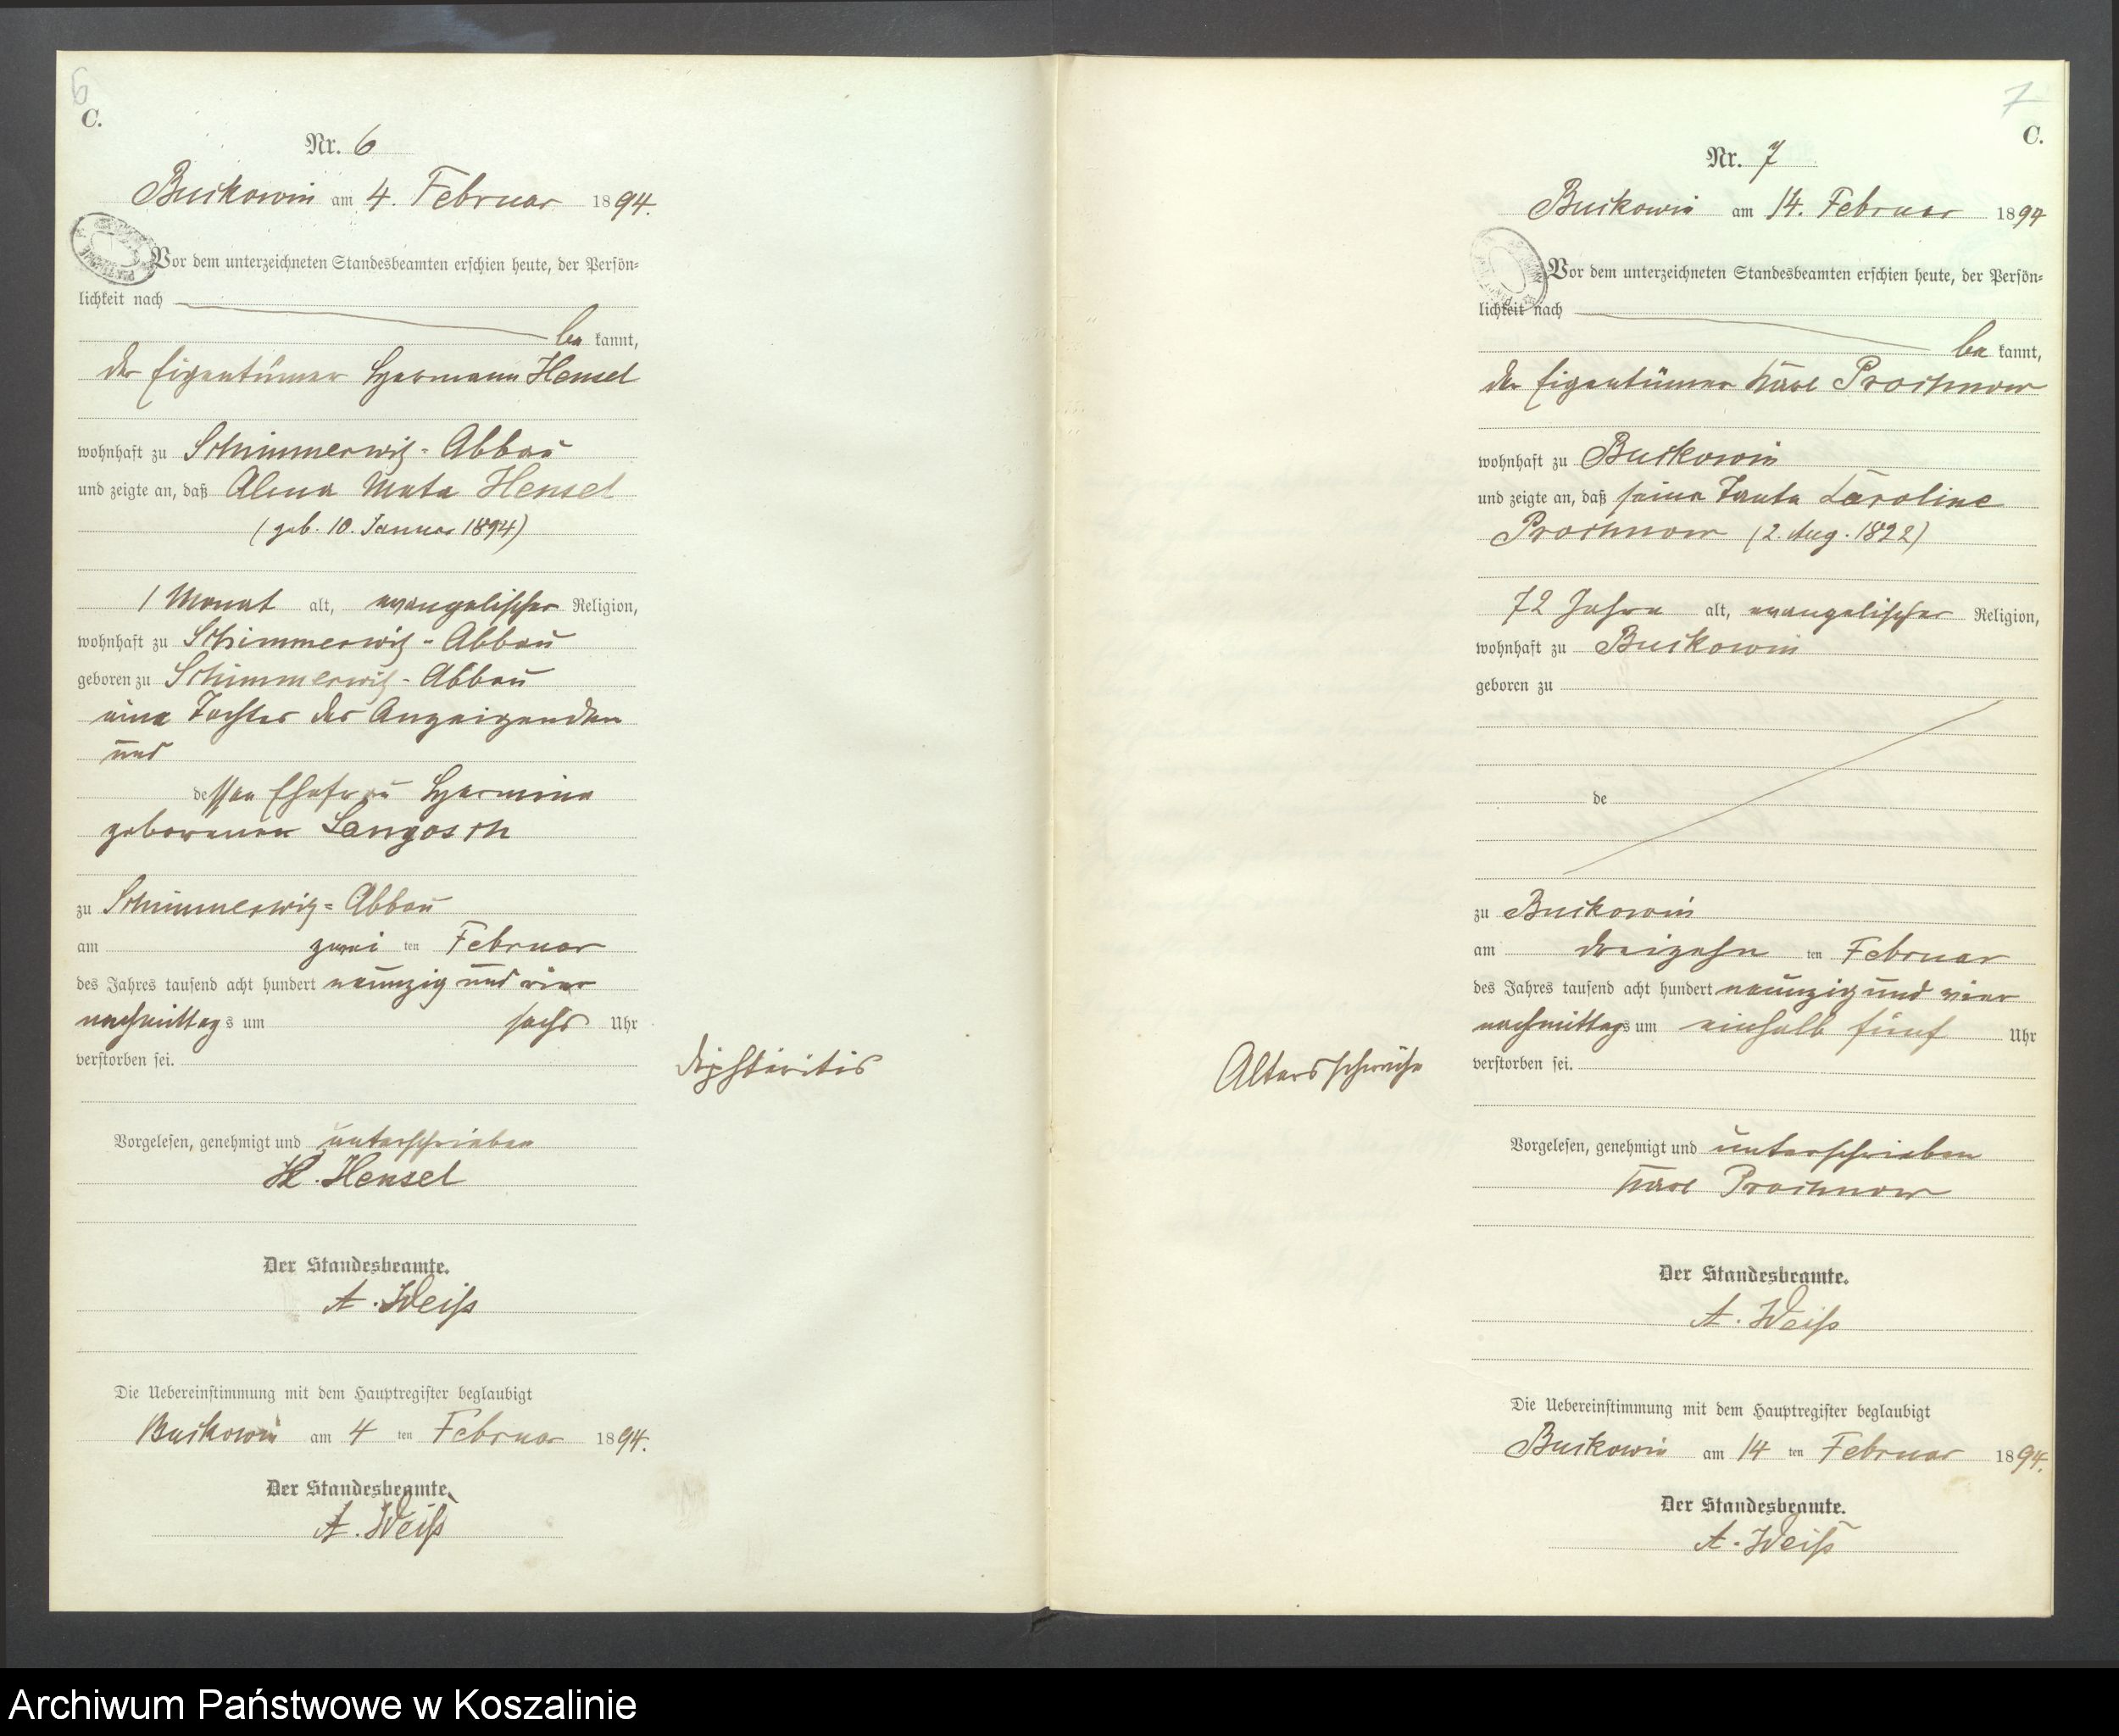 6
C.
Nr. 6
Buckowin am 4. Februar 1894.
Vor dem unterzeichneten Standesbeamten erschien heute, der Persön-
lichkeit nach
be kannt,
der Eigentümer Hermann Hensel
wohnhaft zu Schimmerwitz-Abbau
und zeigte an, daß Alma Meta Hensel
(geb. 10. Januar 1894)
1 Monat alt, evangelischer Religion,
wohnhaft zu Schimmerwitz-Abbau
geboren zu Schimmerwitz-Abbau
eine Tochter des Anzeigenden
und
dessen Ehefrau Hermine
geborenen Langosch
zu Schimmerwitz-Abbau
am zwei ten Februar
des Jahres tausend acht hundert neunzig und vier
nachmittags um sechs Uhr
verstorben sei.
Diphteritis
Vorgelesen, genehmigt und unterschrieben
H. Hensel
Der Standesbeamte.
A. Weiß
Die Uebereinstimmung mit dem Hauptregister beglaubigt
Buckowin am 4 ten Februar 1894.
Der Standesbeamte.
A. Weiß
7
C.
Nr. 7
Buckowin am 14. Februar 1894
Vor dem unterzeichneten Standesbeamten erschien heute, der Persön-
lichkeit nach
be kannt,
der Eigentümer Karl Prochnow
wohnhaft zu Buckowin
und zeigte an, daß seine Tante Caroline
Prochnow (2. Aug. 1822)
72 Jahre alt, evangelischer Religion,
wohnhaft zu Buckowin
geboren zu
de
zu Buckowin
am dreizehn ten Februar
des Jahres tausend acht hundert neunzig und vier
nachmittags um einhalb fünf Uhr
verstorben sei.
Altersschwäche
Vorgelesen, genehmigt und unterschrieben
Karl Prochnow
Der Standesbeamte.
A. Weiß
Die Uebereinstimmung mit dem Hauptregister beglaubigt
Buckowin am 14 ten Februar 1894.
Der Standesbeamte.
A. Weiß
Archiwum Państwowe w Koszalinie